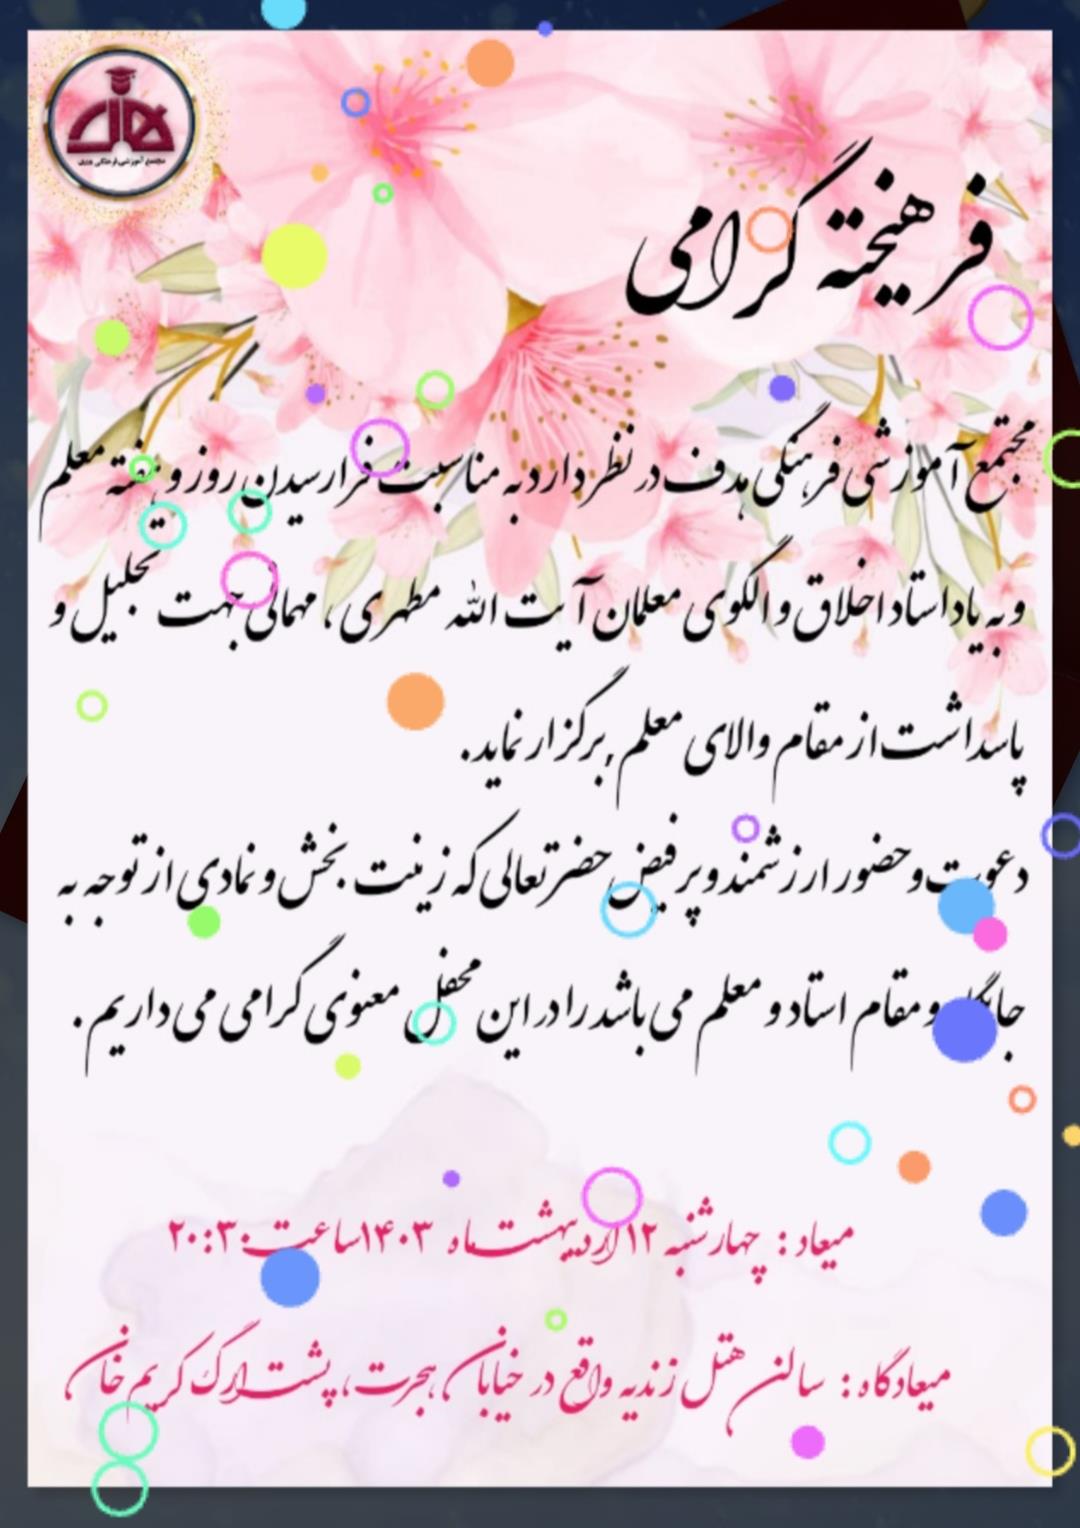 مجتمع آموزشی فرهنگی
فرهیخته گرامی
مجتمع آموزشی فرهنگی هدف در نظر دارد به مناسبت فرارسیدن روز و هفته معلم
و به یاد استاد اخلاق و الگوی معلمان آیت الله مطهری ، مهمانی جهت تجلیل و
پاسداشت از مقام والای معلم ,برگزار نماید.
دعوت و حضور ارزشمند و پر فیض حضرتعالی که زینت بخش و نمادی از توجه به
جایگاه و مقام استاد و معلم می باشد را در این محفل معنوی گرامی می داریم .
میعاد : چهارشنبه ۱۲ اردیبهشت ماه ۱۴۰۳ ساعت ۲۰:۳۰
میعادگاه : سالن هتل زندیه واقع در خیابان هجرت ، پشت ارگ کریم خان